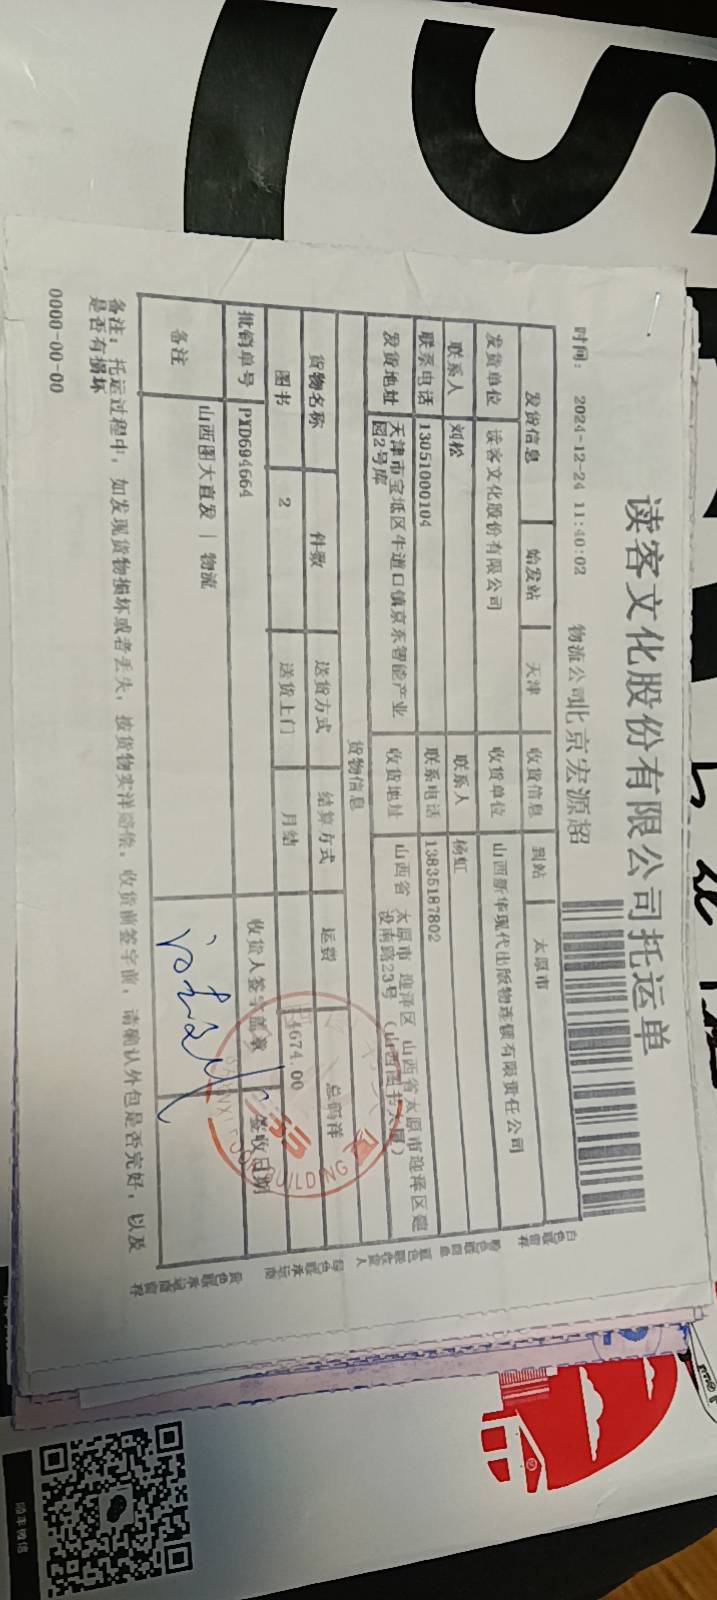 读客文化股份有限公司托运单
时间： 2024-12-24 11:40:02 物流公司北京宏源韶
发货信息 始发站 天津 收货信息 到站 太原市
发货单位 读客文化股份有限公司 收货单位 山西新华现代出版物连锁有限责任公司
联系人 刘松 联系人 杨虹
联系电话 13051000104 联系电话 13835187802
发货地址 天津市宝坻区牛道口镇京东智能产业 收货地址 山西省 太原市 迎泽区 山西省太原市迎泽区建
园2号库 设南路23号 （山西图书大厦）
货物信息
货物名称 件数 送货方式 结算方式 运费 总码洋
图书 2 送货上门 月结 4674.00
批销单号 PXD694664 收货人签字盖章 签收日期
备注 山西图大直发 | 物流
备注：托运过程中，如发现货物损坏或者丢失，按货物实洋赔偿，收货前签字前，请确认外包是否完好，以及
是否有损坏
0000-00-00
BUILDING
顺丰微信